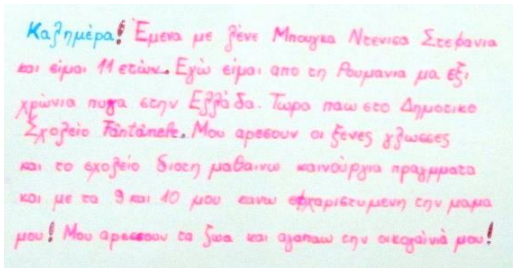 Καλημέρα! Έμενα με λένε Μπουγκα Ντενισα Στεφανια
και είμαι 11 ετών. Εγώ είμαι απο τη Ρουμανια μα εξι
χρώνια πηγα στην Ελλάδα. Τωρα παω στο Δημοτικο
Σχολείο Fântânele. Μου αρεσουν οι ξενες γλωσσες
και το σχολείο διοτη μαθαινω καινούργια πραγματα
και με τα 9 και 10 μου κανω εφχαριστυμενη την μαμα
μου! Μου αρεσουν τα ζωα και αγαπαω την οικογαίνιά μου!